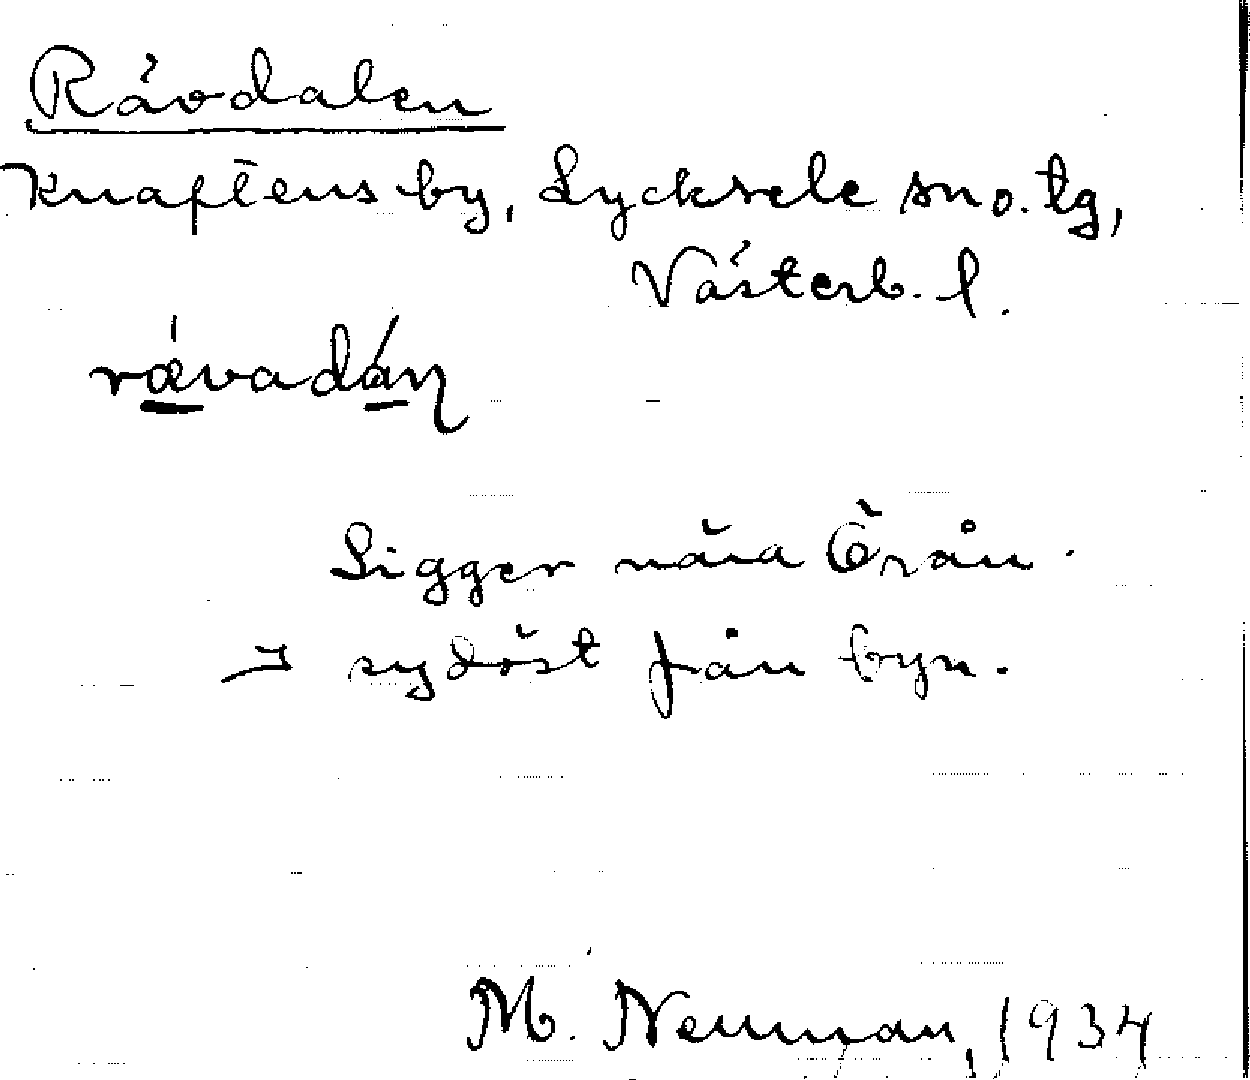 Rävdalen
Knaftens by, Lycksele sn o. tg,
Västerb. l.
rævadáɳ
Ligger nära Örån
sydöst från byn.
M. Neuman, 1934